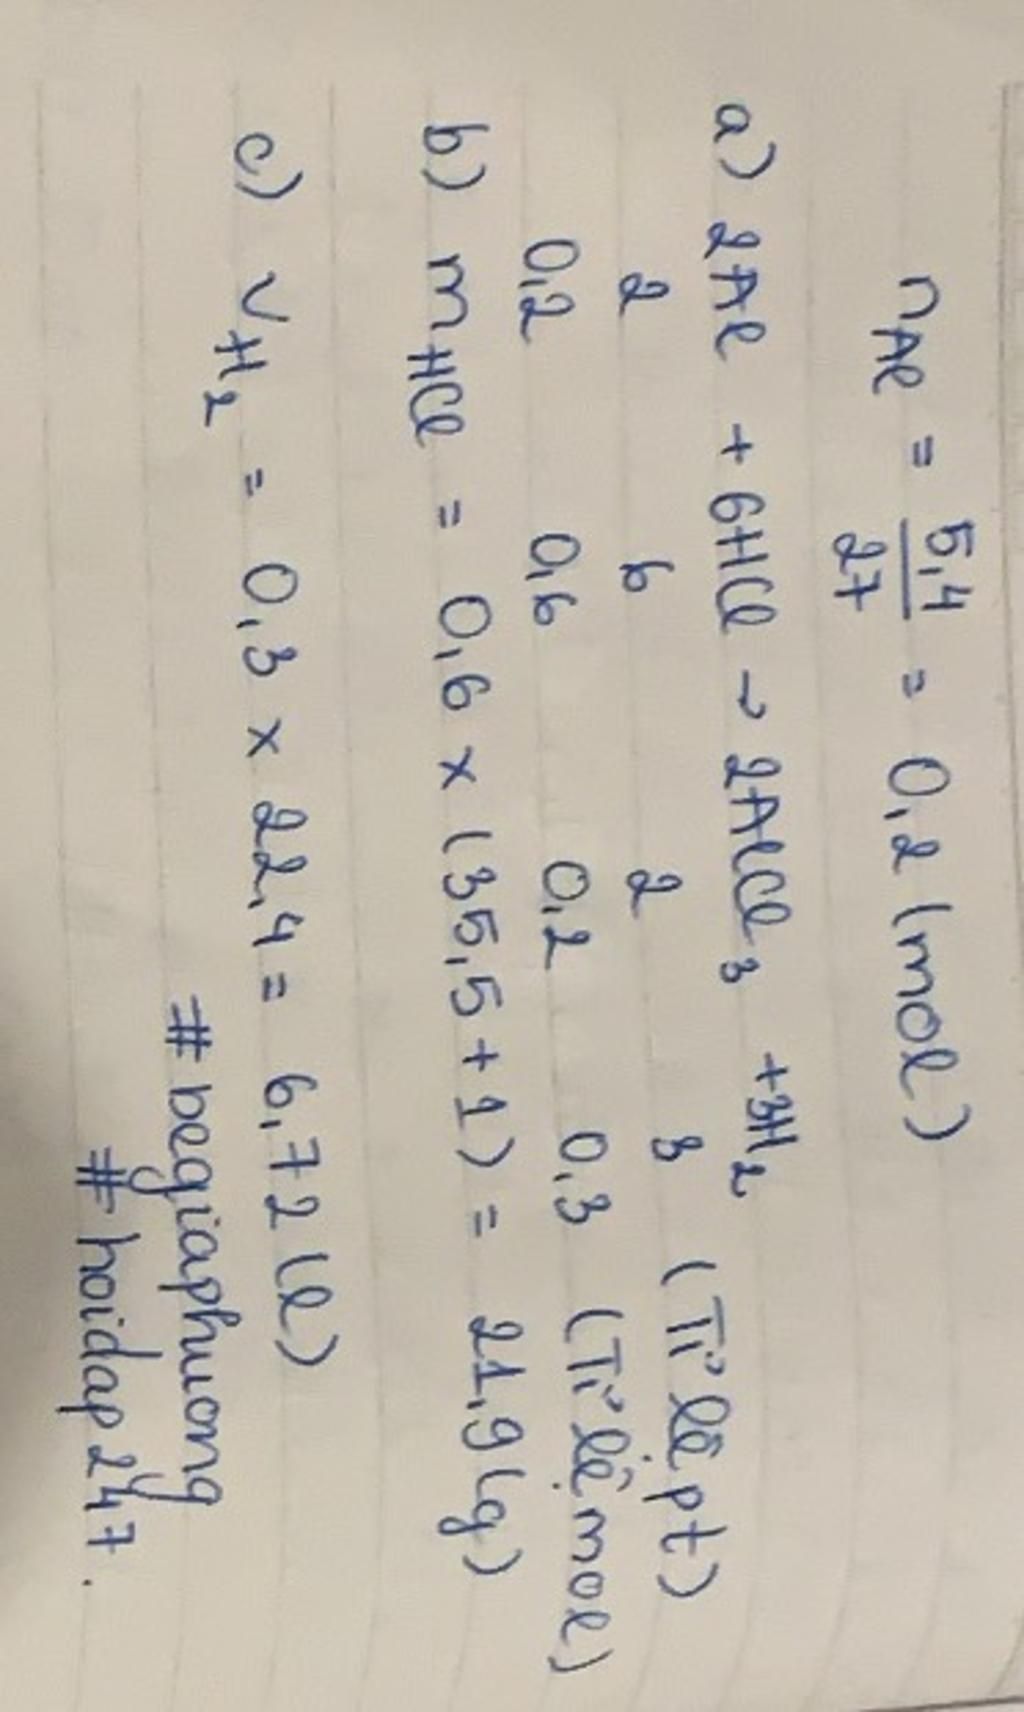 nAl = 5,4/27 = 0,2 (mol)
a) 2Al + 6HCl → 2AlCl3 + 3H2
2 6 2 3 (Tỉ lệ pt)
0,2 0,6 0,2 0,3 (Tỉ lệ mol)
b) mHCl = 0,6 x (35,5 + 1) = 21,9 (g)
c) VH2 = 0,3 x 22,4 = 6,72 (l)
# begiaphuong
# hoidap247.